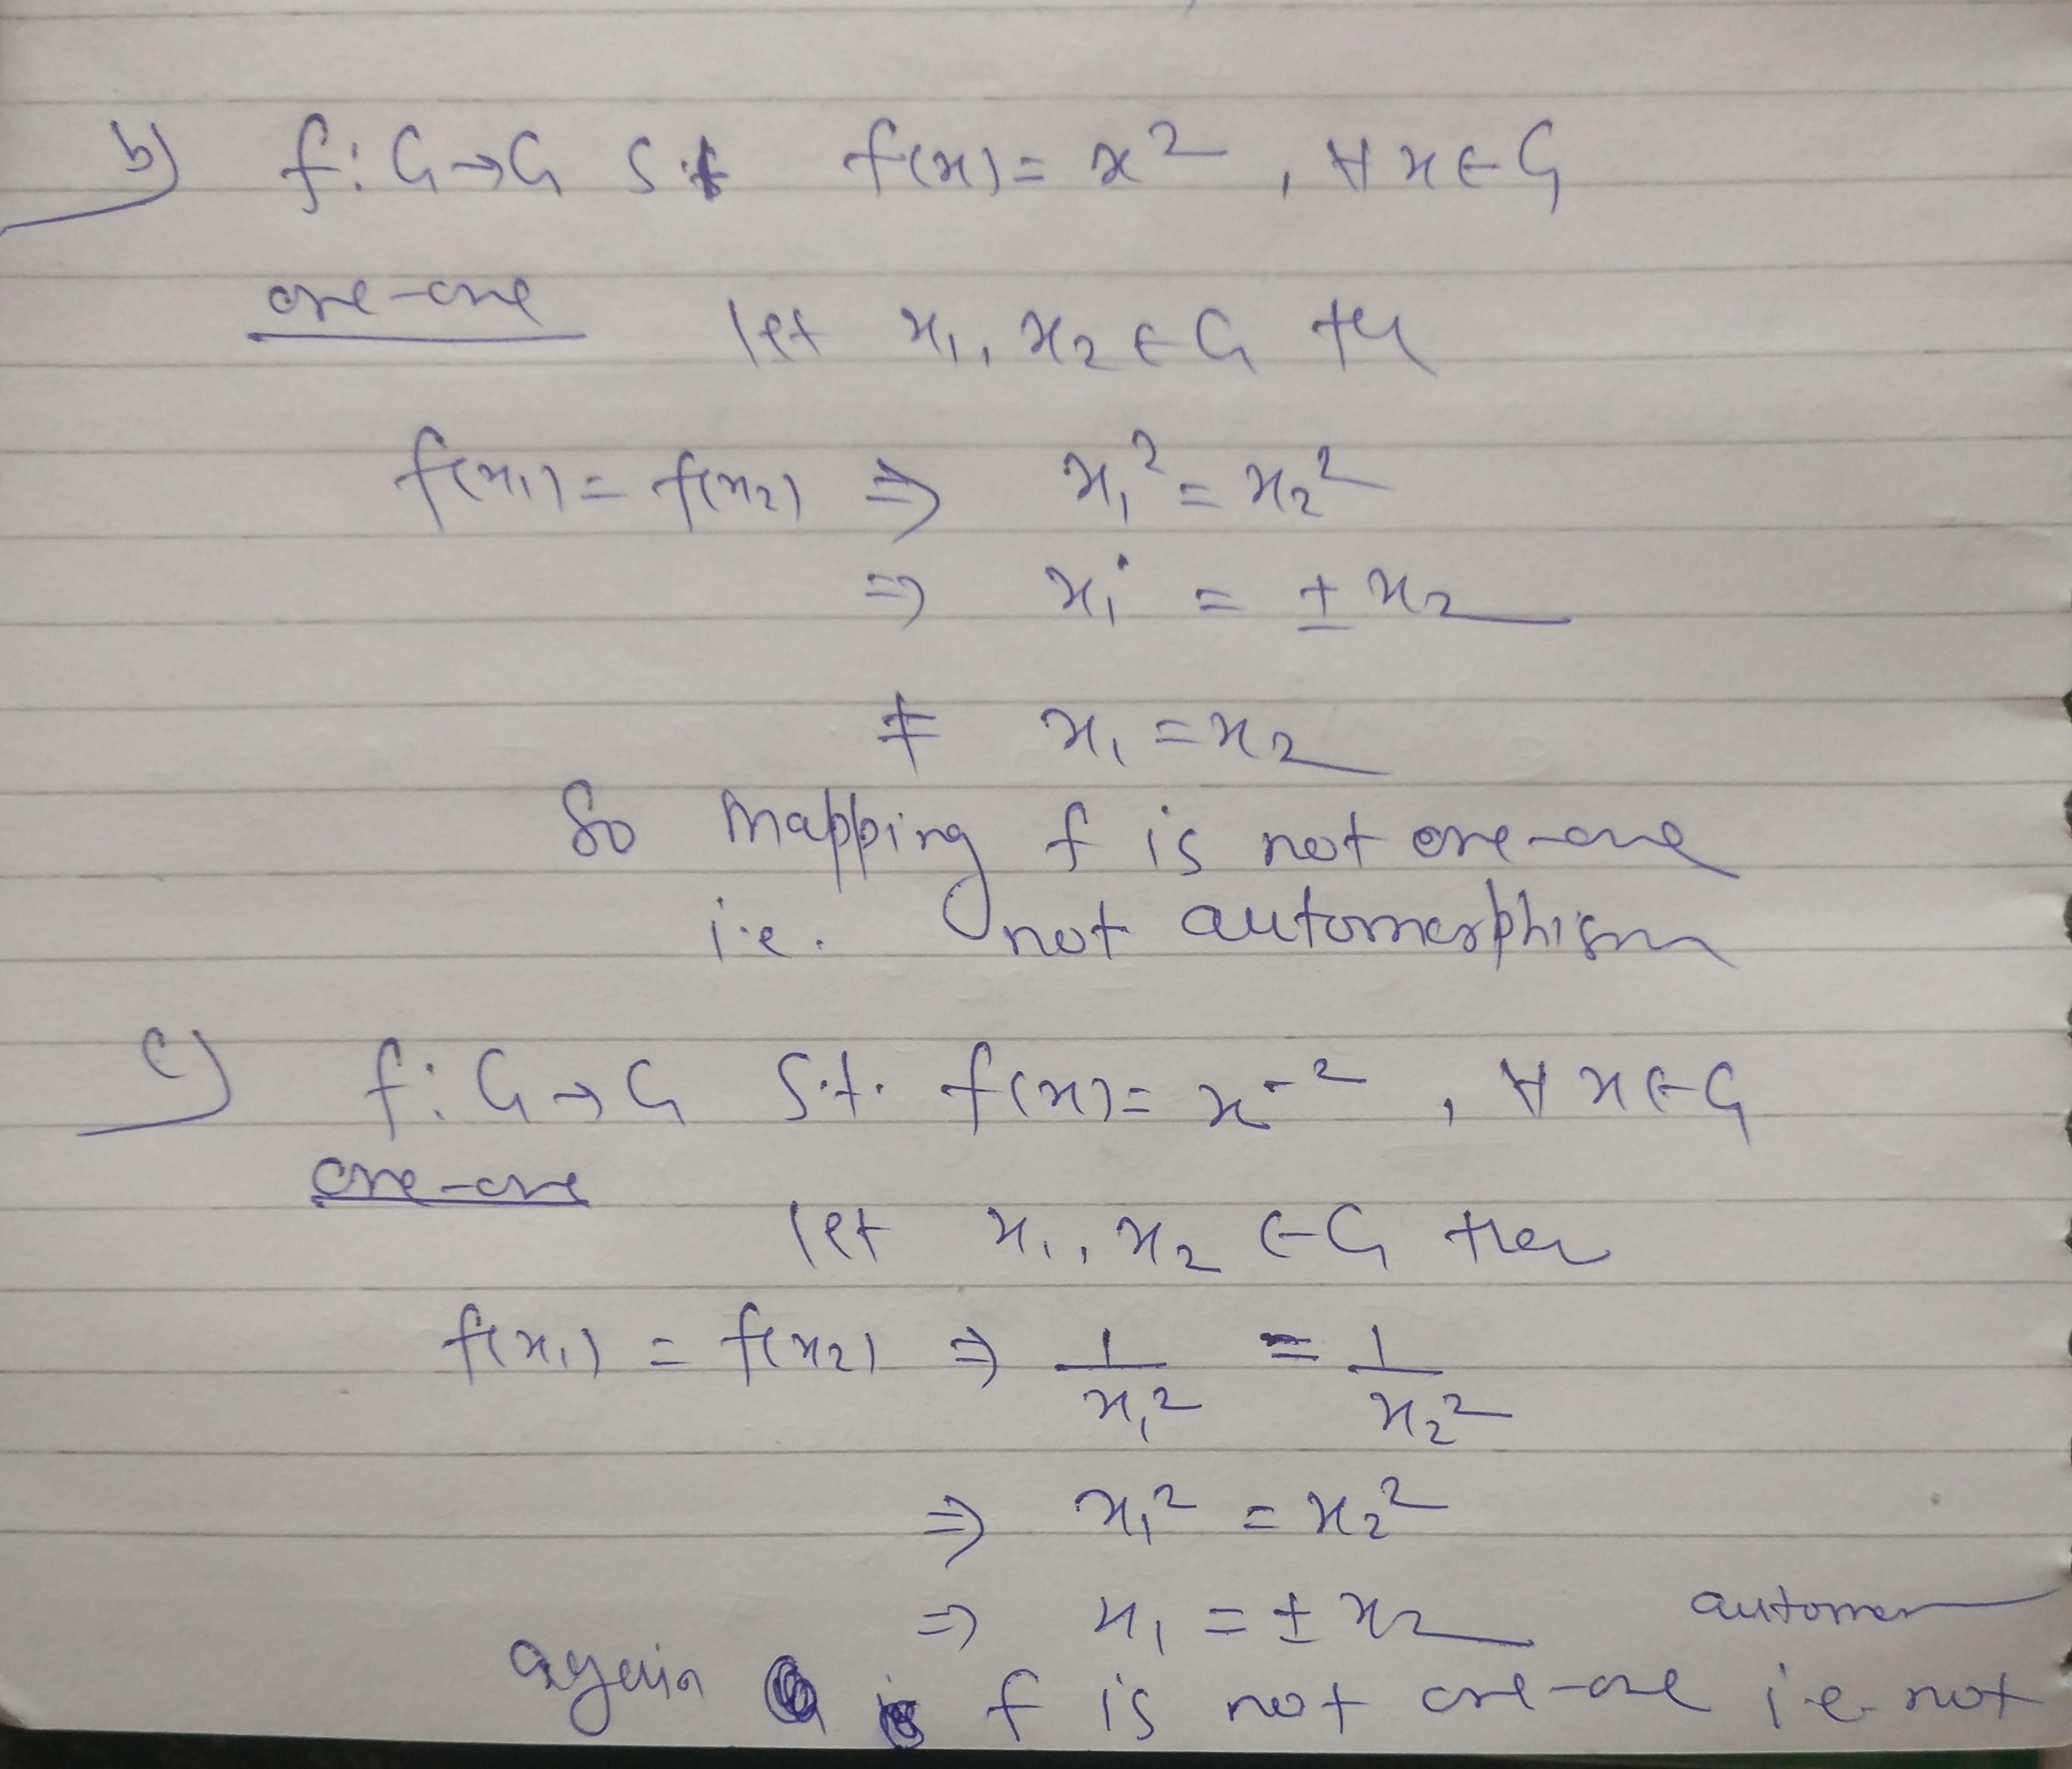 b) f: G→G s.t f(x) = x² , ∀ x ∈ G
one-one
let x₁, x₂ ∈ G
f(x₁) = f(x₂) ⇒ x₁² = x₂²
⇒ x₁ = ± x₂
≠ x₁ = x₂
So mapping f is not one-one
i.e. not automorphism
c) f: G→G S.t. f(x) = x⁻² , ∀ x ∈ G
one-one
let x₁, x₂ ∈ G then
f(x₁) = f(x₂) ⇒ 1/x₁² = 1/x₂²
⇒ x₁² = x₂²
⇒ x₁ = ± x₂
again f is not one-one i.e. not